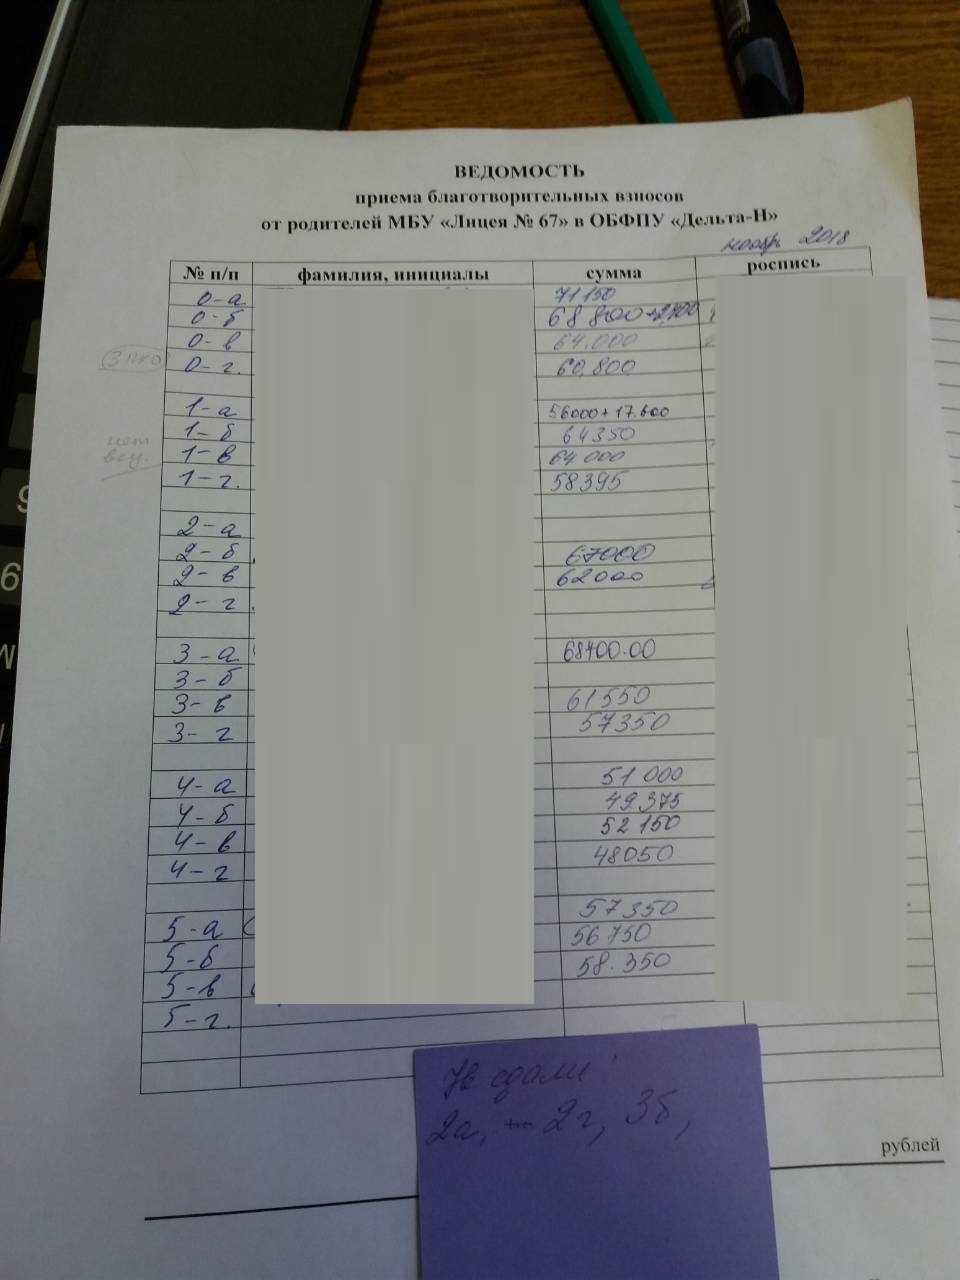 ВЕДОМОСТЬ
приема благотворительных взносов
от родителей МБУ «Лицея № 67» в ОБФПУ «Дельта-Н»
ноябрь 2018
№ п/п фамилия, инициалы сумма роспись
0-а 71150
0-б 68 800+2,700
0-в 64.000
3 ПКО 0-г. 60,800
1-а 56000+17.600
1-б 64350
нет 1-в 64 000
1-г. 58395
2-а
2-б 67000
2-в 62000
2-г
3-а 68700.00
3-б
3-в 61550
3-г 57350
4-а 51 000
4-б 49375
4-в 52 150
4-г 48050
5-а 57350
5-б 56750
5-в 58.350
5-г.
Не сдали:
2а, 2г, 3б,
рублей